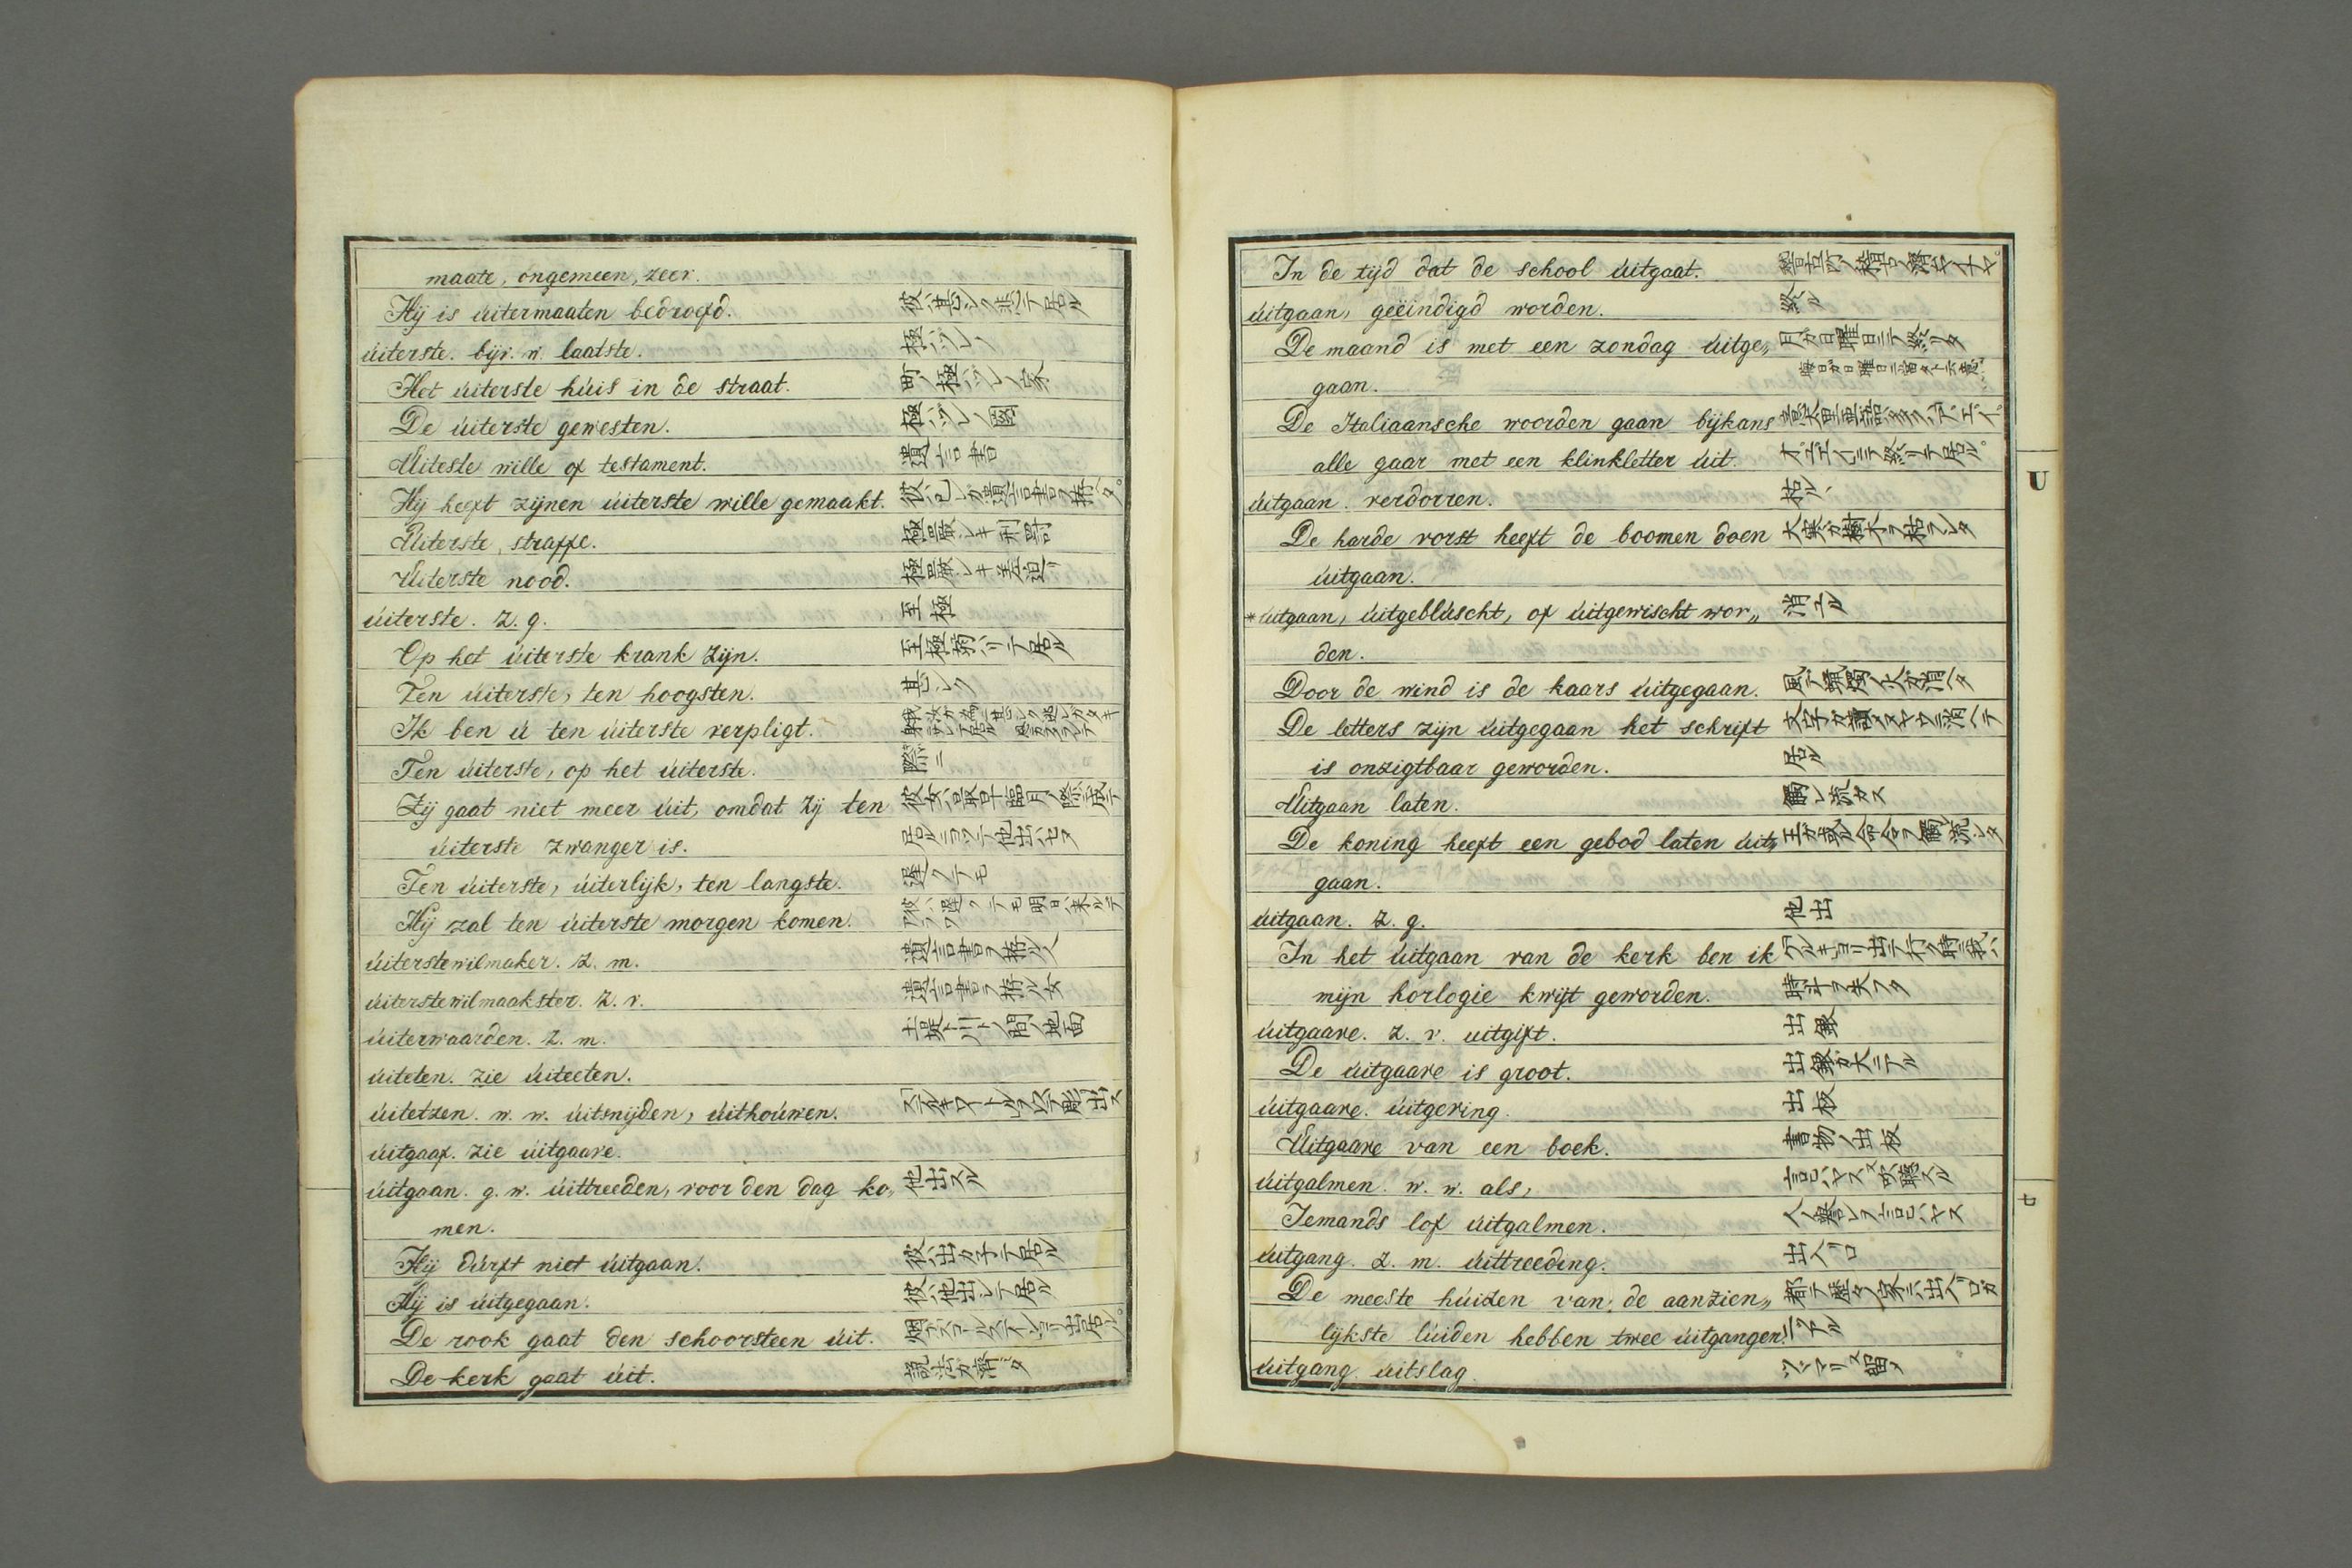 maate, ongemeen, zeer.
Hij is úitermaaten bedroefd. 彼ハ甚シク悲テ居ル
úiterste. bijv. n. laatste. 極ハツレノ
Het úiterste húis in de straat. 町ノ極ハツレノ家
De úiterste gewesten. 極ハツレノ國
Uiteste wille of testament. 遺言書
Hij heeft zijnen úiterste wille gemaakt. 彼ハ己レガ遺言書ヲ拵ヘタ。
Uiterste, straffe. 極嚴シキ刑罸
Uiterste nood. 極嚴シキ差迫リ
úiterste. z. g. 至極
Op het úiterste krank zijn. 至極病ハツテ居ル
Ten úiterste, ten hoogsten. 甚シク
Ik ben ú ten úiterste verpligt.
Ten úiterste, op het úiterste. 際ニ
Zij gaat niet meer úit, omdat zij ten 彼女ハ最早臨月ノ際ニ成テ
úiterste zwanger is. 居ルニヨツテ他出ハセヌ
Ten úiterste, úiterlijk, ten langste. 遲クテモ
Hij zal ten úiterste morgen komen. 彼ハ遲クテモ明日ハ来ルデアラフ
úiterstewilmaker. z. m. 遺言書ヲ拵ル人
úiterstewilmaakster. z. v. 遺言書ヲ拵ル女
úiterwaarden. z. m. 土堤ト川トノ間ノ地面
úiteten. zie úiteeten.
úitetzen. w. w. úitsnijden, úithoúwen.
úitgaaf. zie úitgaave.
úitgaan. g. w. úittreeden, voor den dag ko„ 他出スル
men.
Hij dúrft niet úitgaan. 彼ハ出カ子テ居ル
Hij is úitgegaan. 彼ハ他出シテ居ル
De rook gaat den schoorsteen úit.
De kerk gaat úit. 説法ガ済ンダ
In de tijd dat de school úitgaat.
úitgaan, geëindigd worden. 終ル
De maand is met een zondag úitge„ 月ガ日曜日ニテ終リタ
gaan. 晦日ガ日曜日ニ當タト云意
De Italiaansche woorden gaan bijkans
alle gaar met een klinkletter úit.
úitgaan. verdorren. 枯ルヽ
De harde vorst heeft de boomen doen 大寒ガ樹木ヲ枯ラシタ
úitgaan.
*úitgaan, úitgeblúscht, of úitgewischt wor„ 消エル
den.
Door de wind is de kaars úitgegaan. 風デ蠟燭ノ火ガ消ヘタ
De letters zijn úitgegaan het schrift 文字ガ讀メヌヤウニ消ヘテ
is onzigtbaar geworden. 居ル
Uitgaan laten. 觸レ流カス
De koning heeft een gebod laten úit„ 王ガ或ル命令ヲ觸流シタ
gaan.
úitgaan. z. g. 他出
In het úitgaan van de kerk ben ik
mijn horlogie kwijt geworden. 時斗ヲ失フタ
úitgaave. z. v. uitgift. 出銀
De úitgaave is groot. 出銀ガ大ニアル
úitgaave. úitgeving. 出板
Uitgaave van een boek. 書物ノ出板
úitgalmen. w. w. als,
Iemands lof úitgalmen. 人ノ譽レヲ言ヒハヤス
úitgang. z. m. úittreeding. 出入リ口
De meeste húizen van de aanzien„
lijkste lúiden hebben twee úitgangen. 二ツアル
úitgang. uitslag.
U